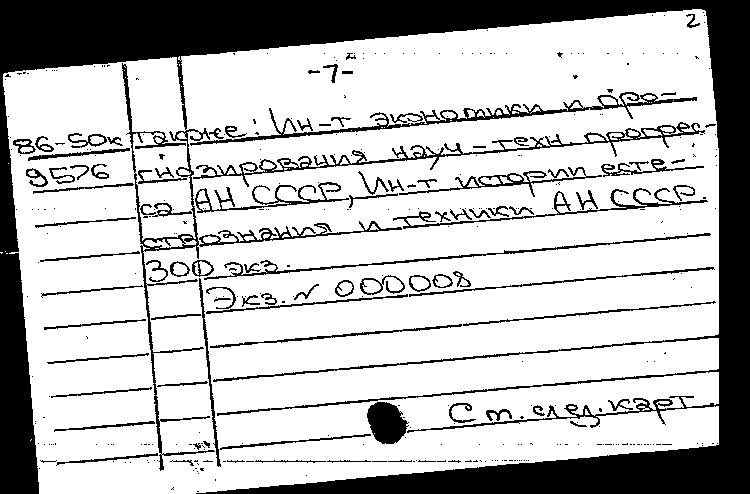 2
-7-
86-50к также: Ин-т экономики и про-
9576 гнозирования науч-техн. прогрес-
са АН СССР, Ин-т истории есте-
ствознания и техники АН СССР.
300 экз.
Экз. № 000008
См. след. карт.